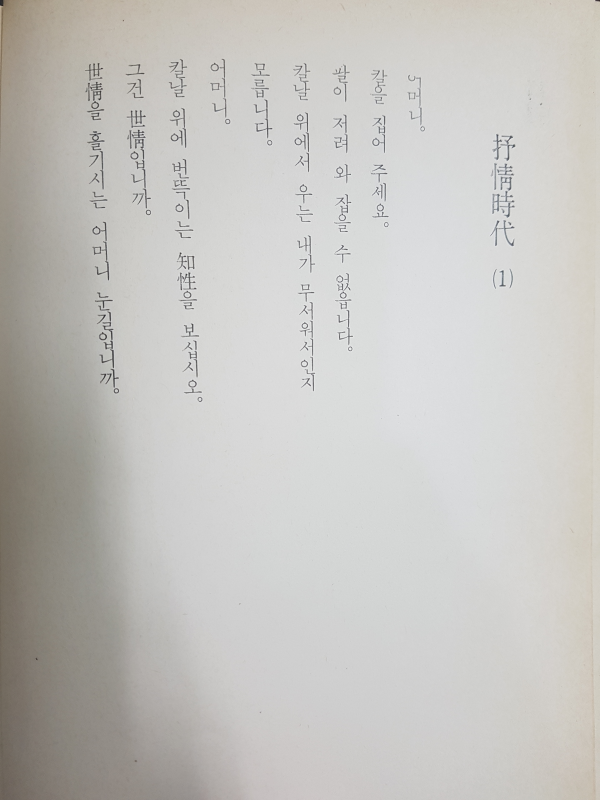 抒情時代 (1)
어머니.
칼을 집어 주세요.
팔이 저려 와 잡을 수 없읍니다.
칼날 위에서 우는 내가 무서워서인지
모릅니다.
어머니.
칼날 위에 번뜩이는 知性을 보십시오.
그건 世情입니까.
世情을 흘기시는 어머니 눈길입니까.